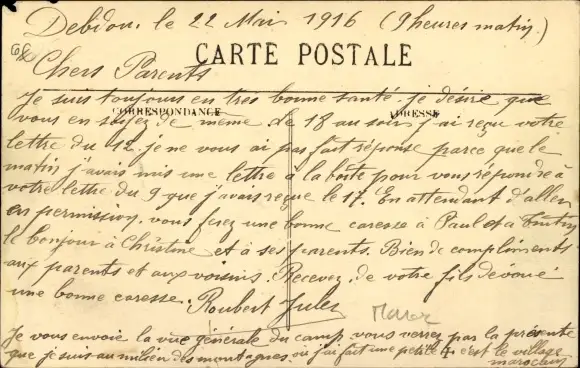 Debdou. le 22 Mai 1916 (9 heures matin.)
CARTE POSTALE
Chers Parents
Je suis toujours en très bonne santé. je désire que
CORRESPONDANCE
ADRESSE
vous en soyez de même. Le 18 au soir j'ai reçu votre
lettre du 12. je ne vous ai pas fait réponse parce que le
matin j'avais mis une lettre à la boîte pour vous répondre à
votre lettre du 9 que j'avais reçue le 17. En attendant d'aller
en permission, vous ferez une bonne caresse à Paul et à
le bonjour à Christine et à ses parents. Bien de compliments
aux parents et aux voisins. Recevez de votre fils dévoué
une bonne caresse. Roubert Jules
Maroc
Je vous envoie la vue générale du camp. vous verrez par la présente
que je suis au milieu des montagnes. où j'ai fait une petite + c'est le village
marocain